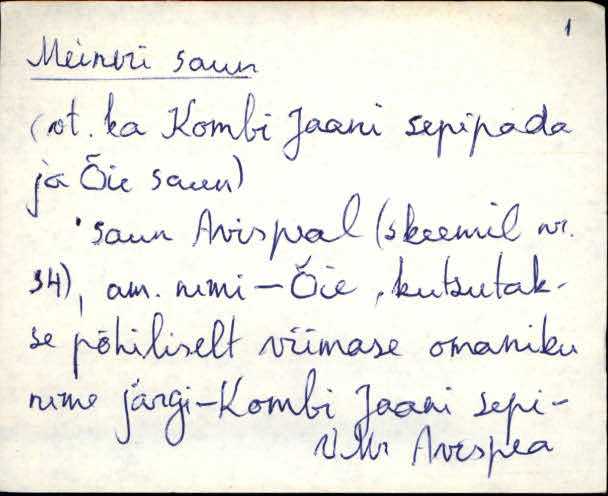 1
Meinvri saun
(vt. ka Kombi Jaani sepipada
ja Õie saun)
saun Avispeal (skeemil nr.
34), am. nimi – Õie, kutsutak-
se põhiliselt viimase omaniku
nime järgi – Kombi Jaani sepi-
VMr Avispea